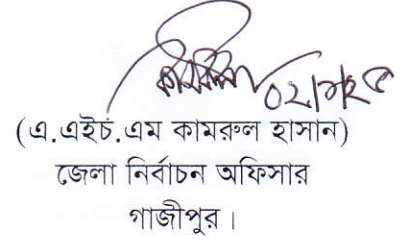 (এ.এইচ.এম কামরুল হাসান)
জেলা নির্বাচন অফিসার
গাজীপুর।